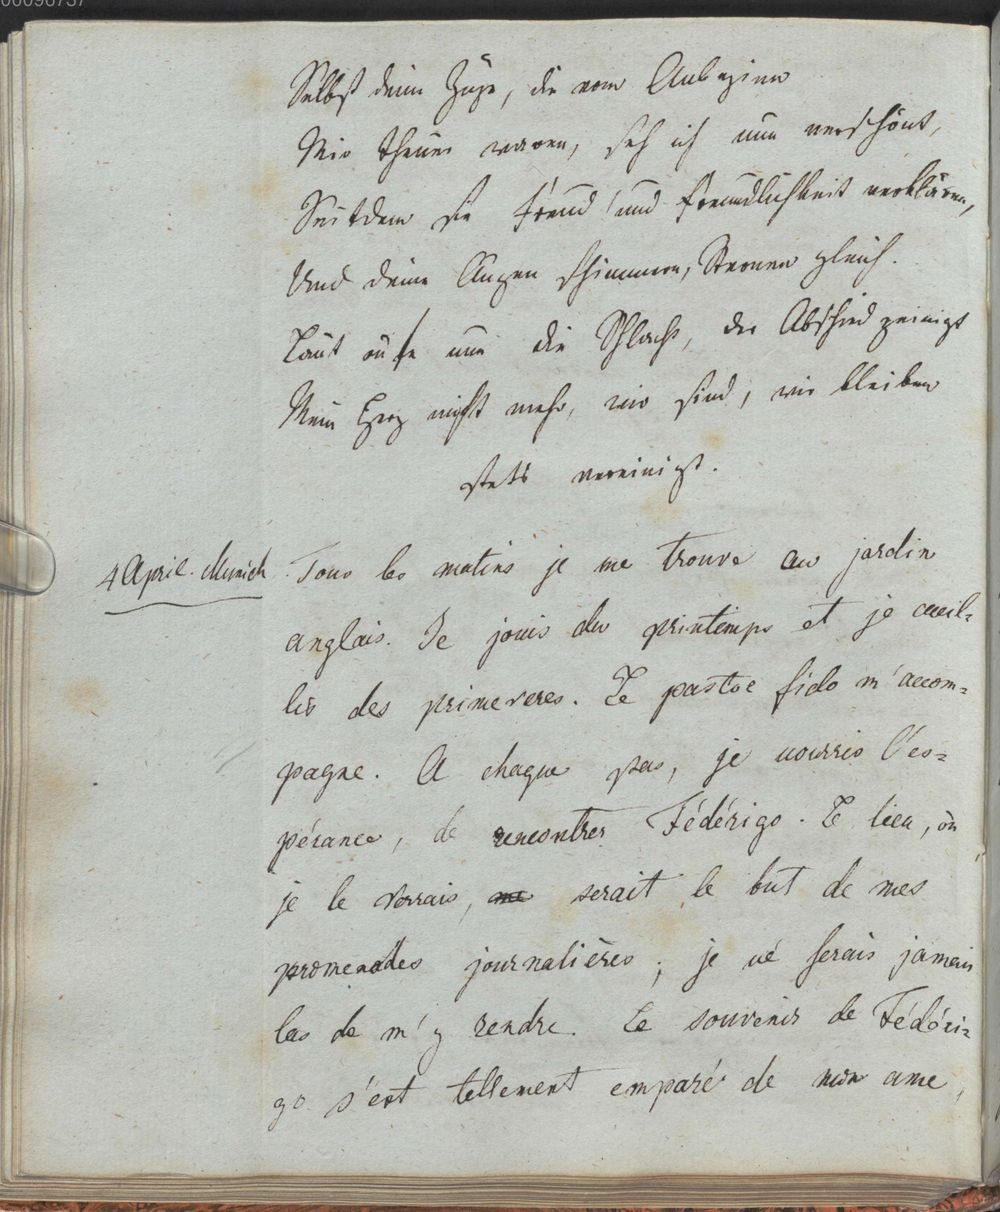 00096737
Selbst deine Züge, die vom Anbeginn
Mir theuer waren, seh ich nun verschönt,
Seitdem sie Freud' und Freundlichkeit verklären,
Und deine Augen schimmern, Sternen gleich.
Laut rufe nun die Schlacht, der Abschied peinigt
Mein Herz nicht mehr, wir sind, wir bleiben
stets vereinigt.
4 April. Munich. Tous les matins je me trouve au jardin
anglais. Je jouis du printemps et je cueil=
lis des primeveres. Le pastor fido m'accom=
pagne. A chaque pas, je nourris l'es=
pérance, de rencontrer Fédérigo. Le lieu, où
je le verrais, me serait le but de mes
promenades journalières; je ne serais jamais
las de m'y rendre. Le souvenir de Fédéri=
go s'est tellement emparé de mon ame,